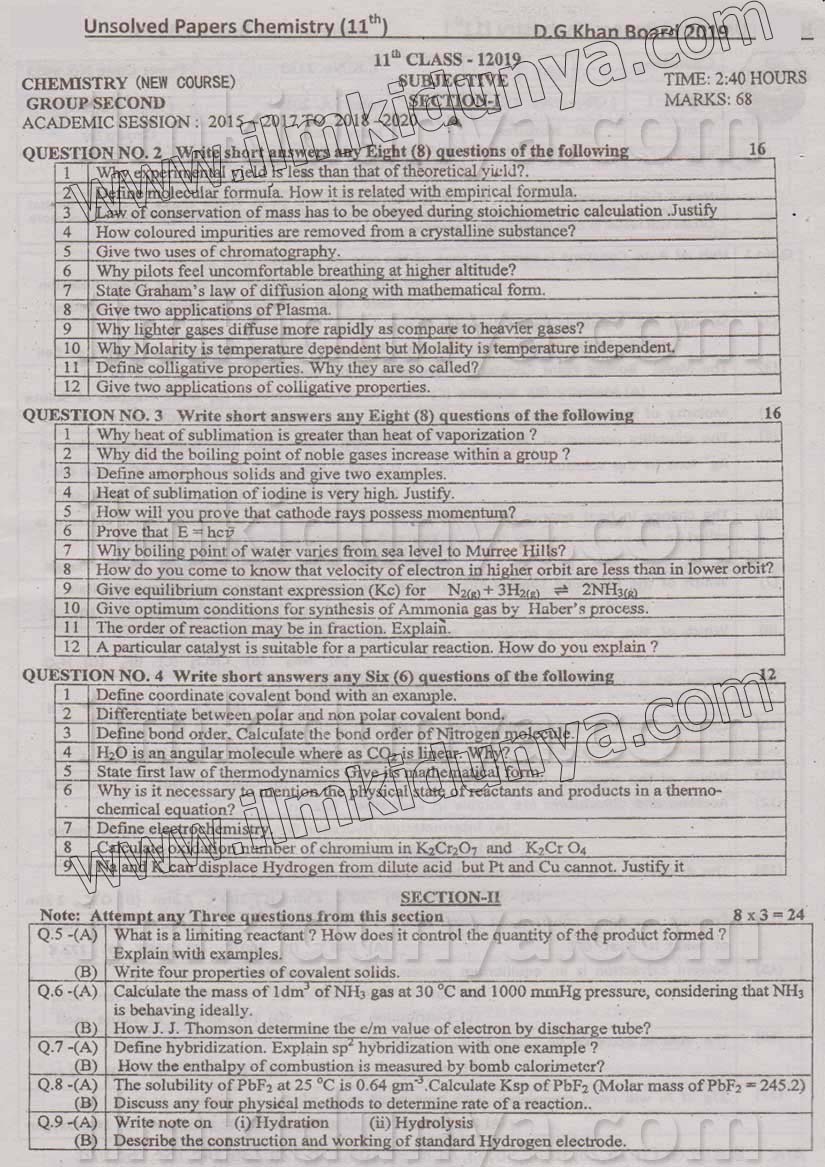 Unsolved Papers Chemistry (11th)
D.G Khan Board 2019
11th CLASS - 12019
CHEMISTRY (NEW COURSE)
SUBJECTIVE
TIME: 2:40 HOURS
GROUP SECOND
SECTION-I
MARKS: 68
ACADEMIC SESSION : 2015 - 2017 TO 2018 - 2020
QUESTION NO. 2 Write short answers any Eight (8) questions of the following 16
1 Why experimental yield is less than that of theoretical yield?.
2 Define molecular formula. How it is related with empirical formula.
3 Law of conservation of mass has to be obeyed during stoichiometric calculation .Justify
4 How coloured impurities are removed from a crystalline substance?
5 Give two uses of chromatography.
6 Why pilots feel uncomfortable breathing at higher altitude?
7 State Graham's law of diffusion along with mathematical form.
8 Give two applications of Plasma.
9 Why lighter gases diffuse more rapidly as compare to heavier gases?
10 Why Molarity is temperature dependent but Molality is temperature independent.
11 Define colligative properties. Why they are so called?
12 Give two applications of colligative properties.
QUESTION NO. 3 Write short answers any Eight (8) questions of the following 16
1 Why heat of sublimation is greater than heat of vaporization ?
2 Why did the boiling point of noble gases increase within a group ?
3 Define amorphous solids and give two examples.
4 Heat of sublimation of iodine is very high. Justify.
5 How will you prove that cathode rays possess momentum?
6 Prove that E = hcν̄
7 Why boiling point of water varies from sea level to Murree Hills?
8 How do you come to know that velocity of electron in higher orbit are less than in lower orbit?
9 Give equilibrium constant expression (Kc) for N2(g) + 3H2(g) ⇌ 2NH3(g)
10 Give optimum conditions for synthesis of Ammonia gas by Haber's process.
11 The order of reaction may be in fraction. Explain.
12 A particular catalyst is suitable for a particular reaction. How do you explain ?
QUESTION NO. 4 Write short answers any Six (6) questions of the following 12
1 Define coordinate covalent bond with an example.
2 Differentiate between polar and non polar covalent bond.
3 Define bond order. Calculate the bond order of Nitrogen molecule.
4 H2O is an angular molecule where as CO2 is linear. Why?
5 State first law of thermodynamics Give its mathematical form.
6 Why is it necessary to mention the physical state of reactants and products in a thermo-
chemical equation?
7 Define electrochemistry.
8 Calculate oxidation number of chromium in K2Cr2O7 and K2Cr O4
9 Na and K can displace Hydrogen from dilute acid but Pt and Cu cannot. Justify it
SECTION-II
Note: Attempt any Three questions from this section 8 x 3 = 24
Q.5 -(A) What is a limiting reactant ? How does it control the quantity of the product formed ?
Explain with examples.
(B) Write four properties of covalent solids.
Q.6 -(A) Calculate the mass of 1dm3 of NH3 gas at 30 °C and 1000 mmHg pressure, considering that NH3
is behaving ideally.
(B) How J. J. Thomson determine the e/m value of electron by discharge tube?
Q.7 -(A) Define hybridization. Explain sp2 hybridization with one example ?
(B) How the enthalpy of combustion is measured by bomb calorimeter?
Q.8 -(A) The solubility of PbF2 at 25 °C is 0.64 gm-3.Calculate Ksp of PbF2 (Molar mass of PbF2 = 245.2)
(B) Discuss any four physical methods to determine rate of a reaction..
Q.9 -(A) Write note on (i) Hydration (ii) Hydrolysis
(B) Describe the construction and working of standard Hydrogen electrode.
www.ilmkidunya.com
www.ilmkidunya.com
ilmkidunya.com